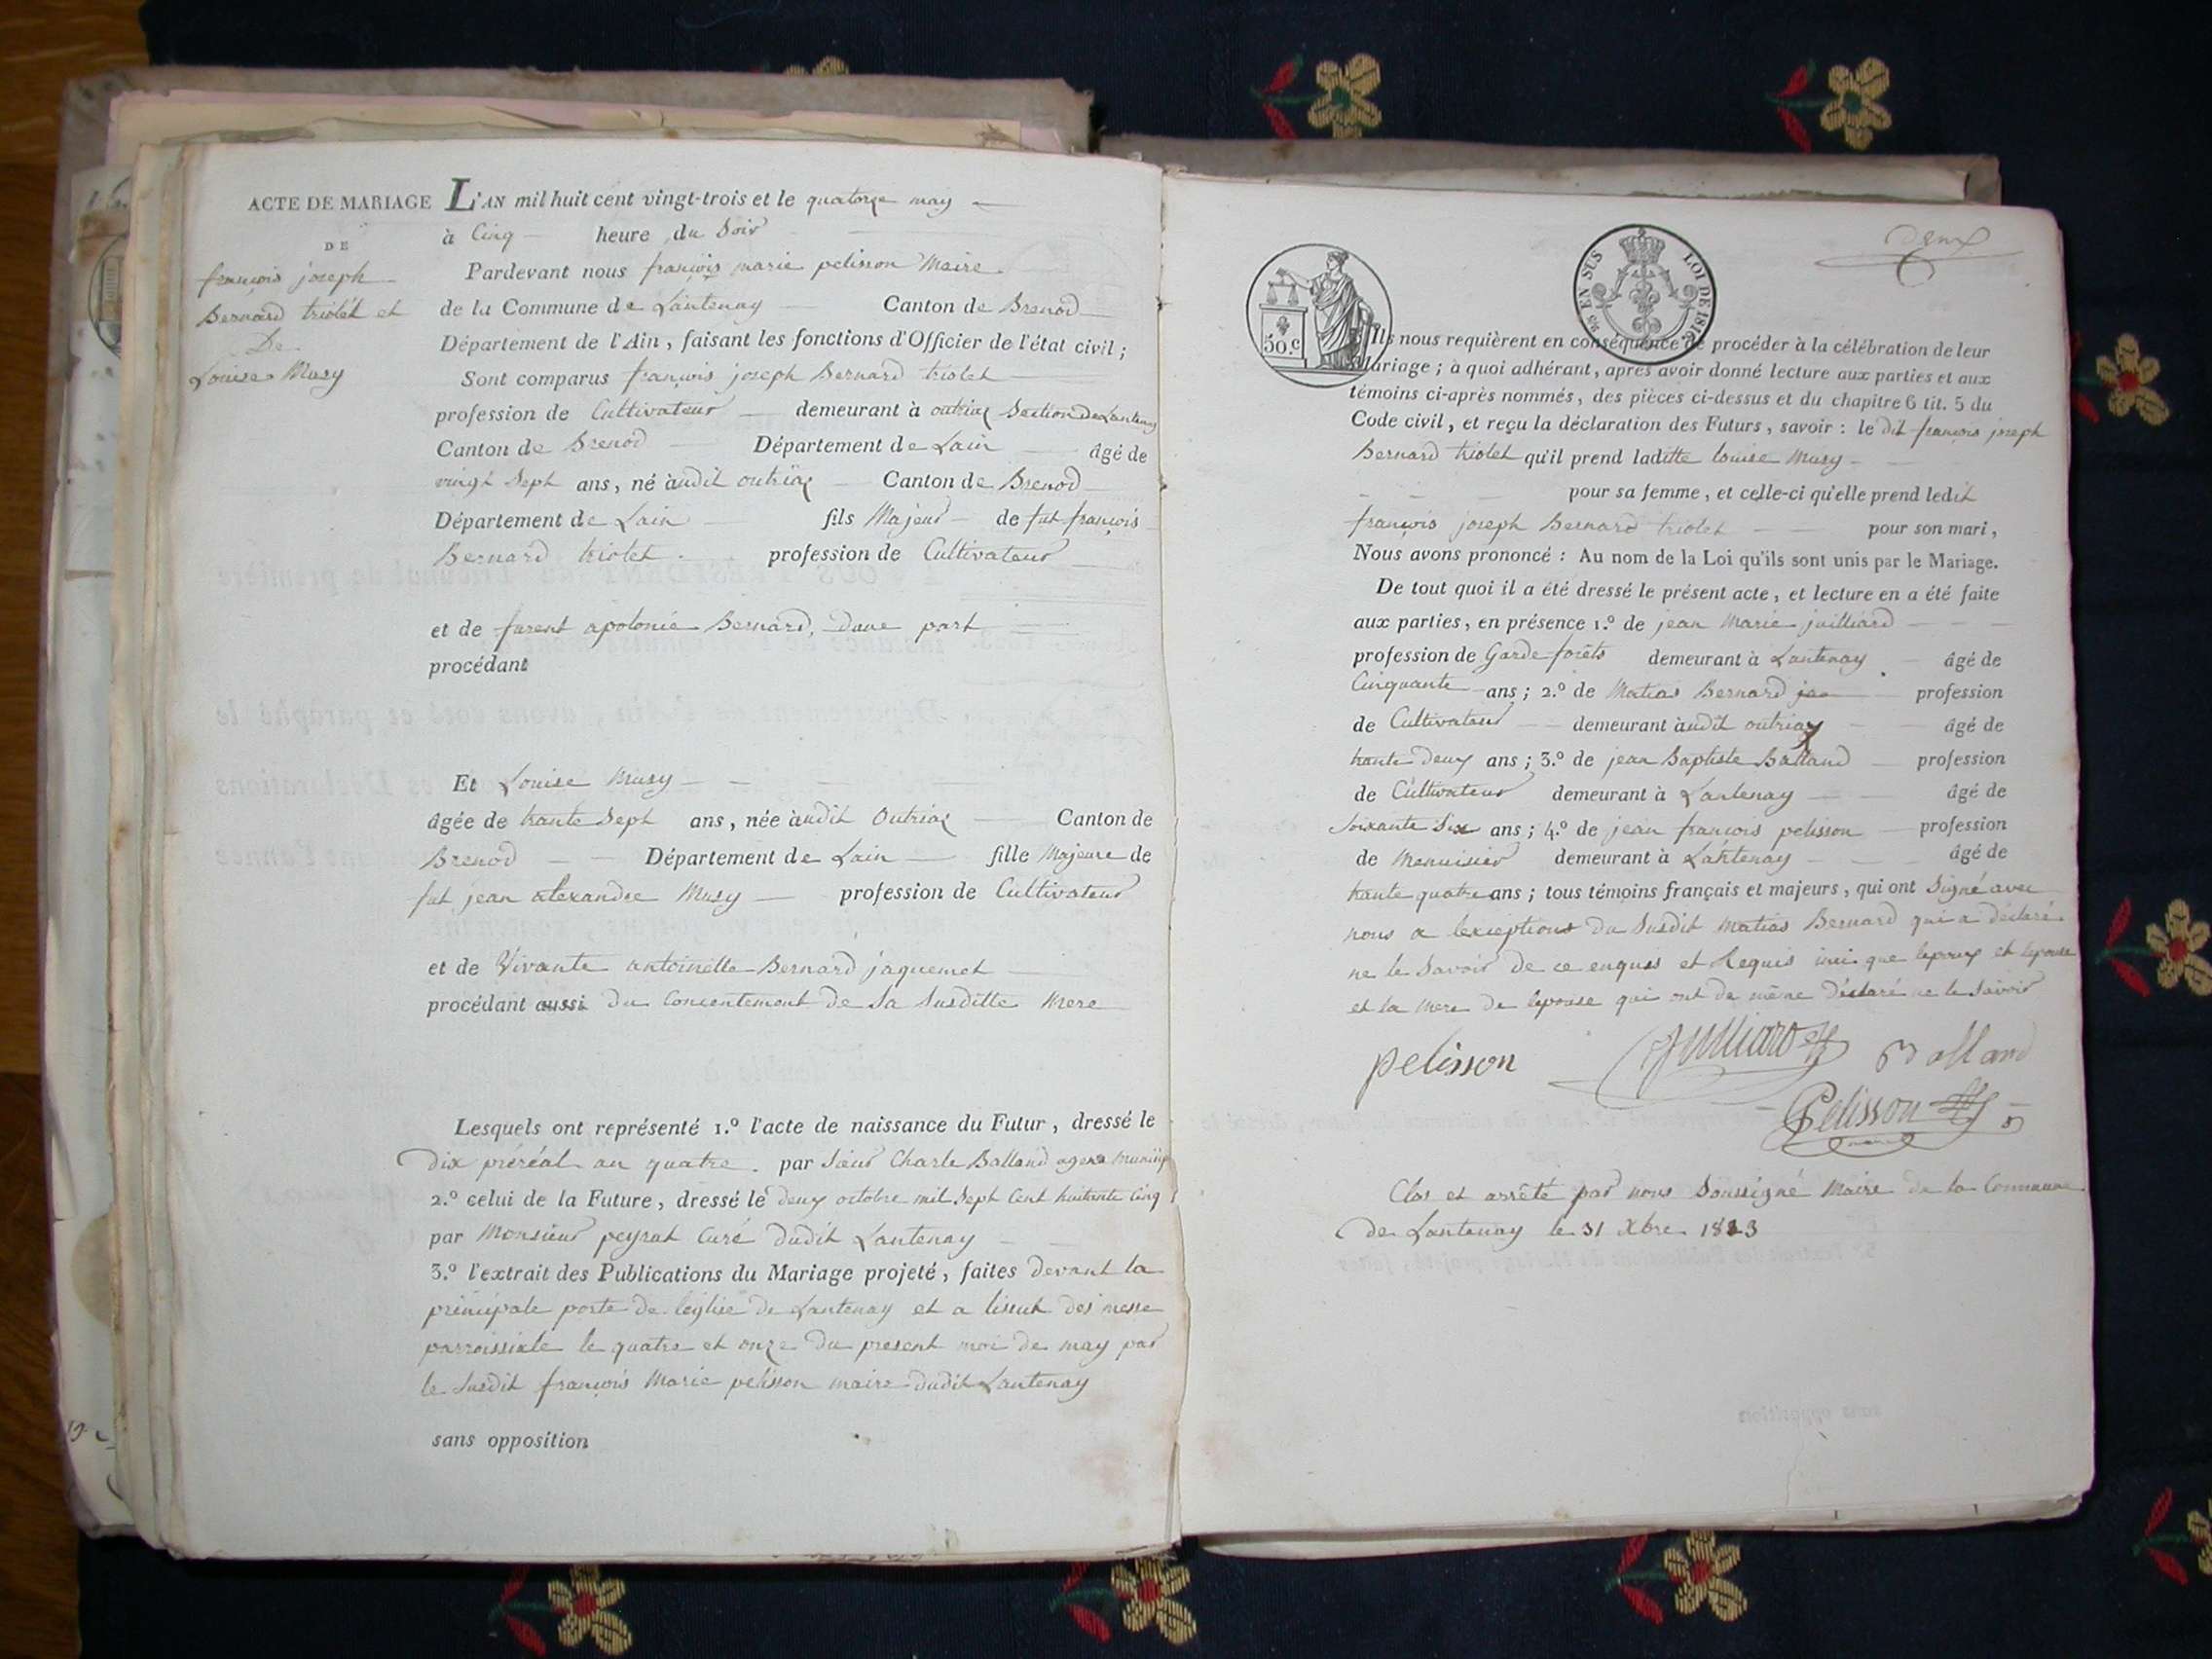 ACTE DE MARIAGE
DE
françois joseph
Bernard triolet et
De
Louise Musy
L'AN mil huit cent vingt-trois et le quatorze may
à Cinq heure du Soir
Pardevant nous françois marie pelisson Maire
de la Commune de Lantenay Canton de Brenod
Département de l'Ain, faisant les fonctions d'Officier de l'état civil;
Sont comparus françois joseph Bernard triolet
profession de Cultivateur demeurant à outriaz Section de Lantenay
Canton de Brenod Département de Lain âgé de
vingt Sept ans, né àudit outriaz Canton de Brenod
Département de Lain fils Majeur de fut françois
Bernard triolet profession de Cultivateur
et de furent apolonie Bernard, dune part
procédant
Et Louise Musy
âgée de trante Sept ans, née àudit Outriaz Canton de
Brenod Département de Lain fille Majeure de
fut jean alexandre Musy profession de Cultivateur
et de Vivante antoinette Bernard jaquemet
procédant aussi du Concentement de Sa Susditte Mere
Lesquels ont représenté 1.º l'acte de naissance du Futur, dressé le
Dix préréal an quatre. par Charle Balland agent
2.º celui de la Future, dressé le deux octobre mil Sept Cent huitante Cinq
par Monsieur peyrat Curé dudit Lantenay
3.º l'extrait des Publications du Mariage projeté, faites devant la
principale porte de leglise de Lantenay et a lissut des messe
parroissiale le quatre et onze du present moi de may par
le Susdit françois Marie pelisson maire dudit Lantenay
sans opposition
50.c
25 EN SUS LOI DE 1816
deux
Ils nous requièrent en conséquence de procéder à la célébration de leur
Mariage; à quoi adhérant, après avoir donné lecture aux parties et aux
témoins ci-après nommés, des pièces ci-dessus et du chapitre 6 tit. 5 du
Code civil, et reçu la déclaration des Futurs, savoir: le dit françois joseph
Bernard triolet qu'il prend laditte louise Musy
pour sa femme, et celle-ci qu'elle prend ledit
françois joseph Bernard triolet pour son mari,
Nous avons prononcé: Au nom de la Loi qu'ils sont unis par le Mariage.
De tout quoi il a été dressé le présent acte, et lecture en a été faite
aux parties, en présence 1.º de jean Marie juilliard
profession de Garde forêts demeurant à Lantenay âgé de
Cinquante ans; 2.º de Matias Bernard profession
de Cultivateur demeurant àudit outriaz âgé de
trante deux ans; 3.º de jean Baptiste Balland profession
de Cultivateur demeurant à Lantenay âgé de
Soixante Six ans; 4.º de jean françois pelisson profession
de Menuisier demeurant à Lantenay âgé de
trante quatre ans; tous témoins français et majeurs, qui ont Signé avec
nous a lexceptions du Susdit Matias Bernard qui a déclaré
ne le Savoir de ce enquis et Requis que lepoux et lepouse
et la Mere de lepouse qui ont de même déclaré ne le Savoir
pelisson Juilliard Balland
Pelisson
Clos et arrêté par nous Soussigné Maire de la Commune
de Lantenay le 31 Xbre 1823